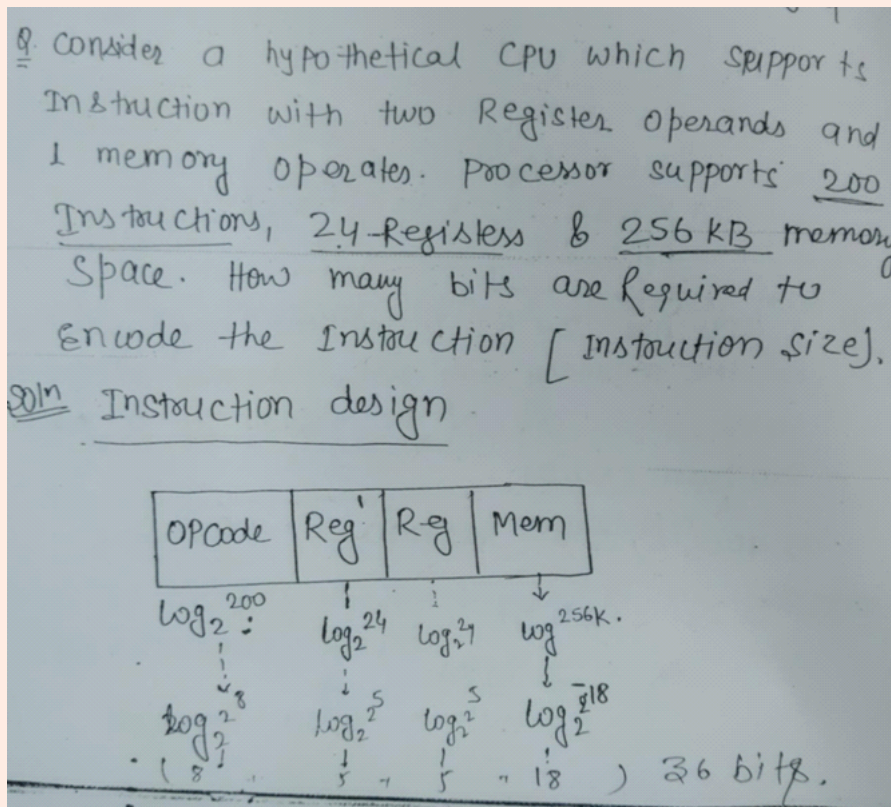 Q. Consider a hypothetical CPU which supports
Instruction with two Register operands and
1 memory operates. Processor supports 200
Instructions, 24-Registers & 256 KB memory
Space. How many bits are Required to
Encode the Instruction [Instruction size].
Soln Instruction design
OPCode Reg Reg Mem
log₂200 : log₂24 log₂24 log 256K.
log₂2⁸ log₂2⁵ log₂2⁵ log₂2¹⁸
( 8 5 5 18 ) 36 bits.